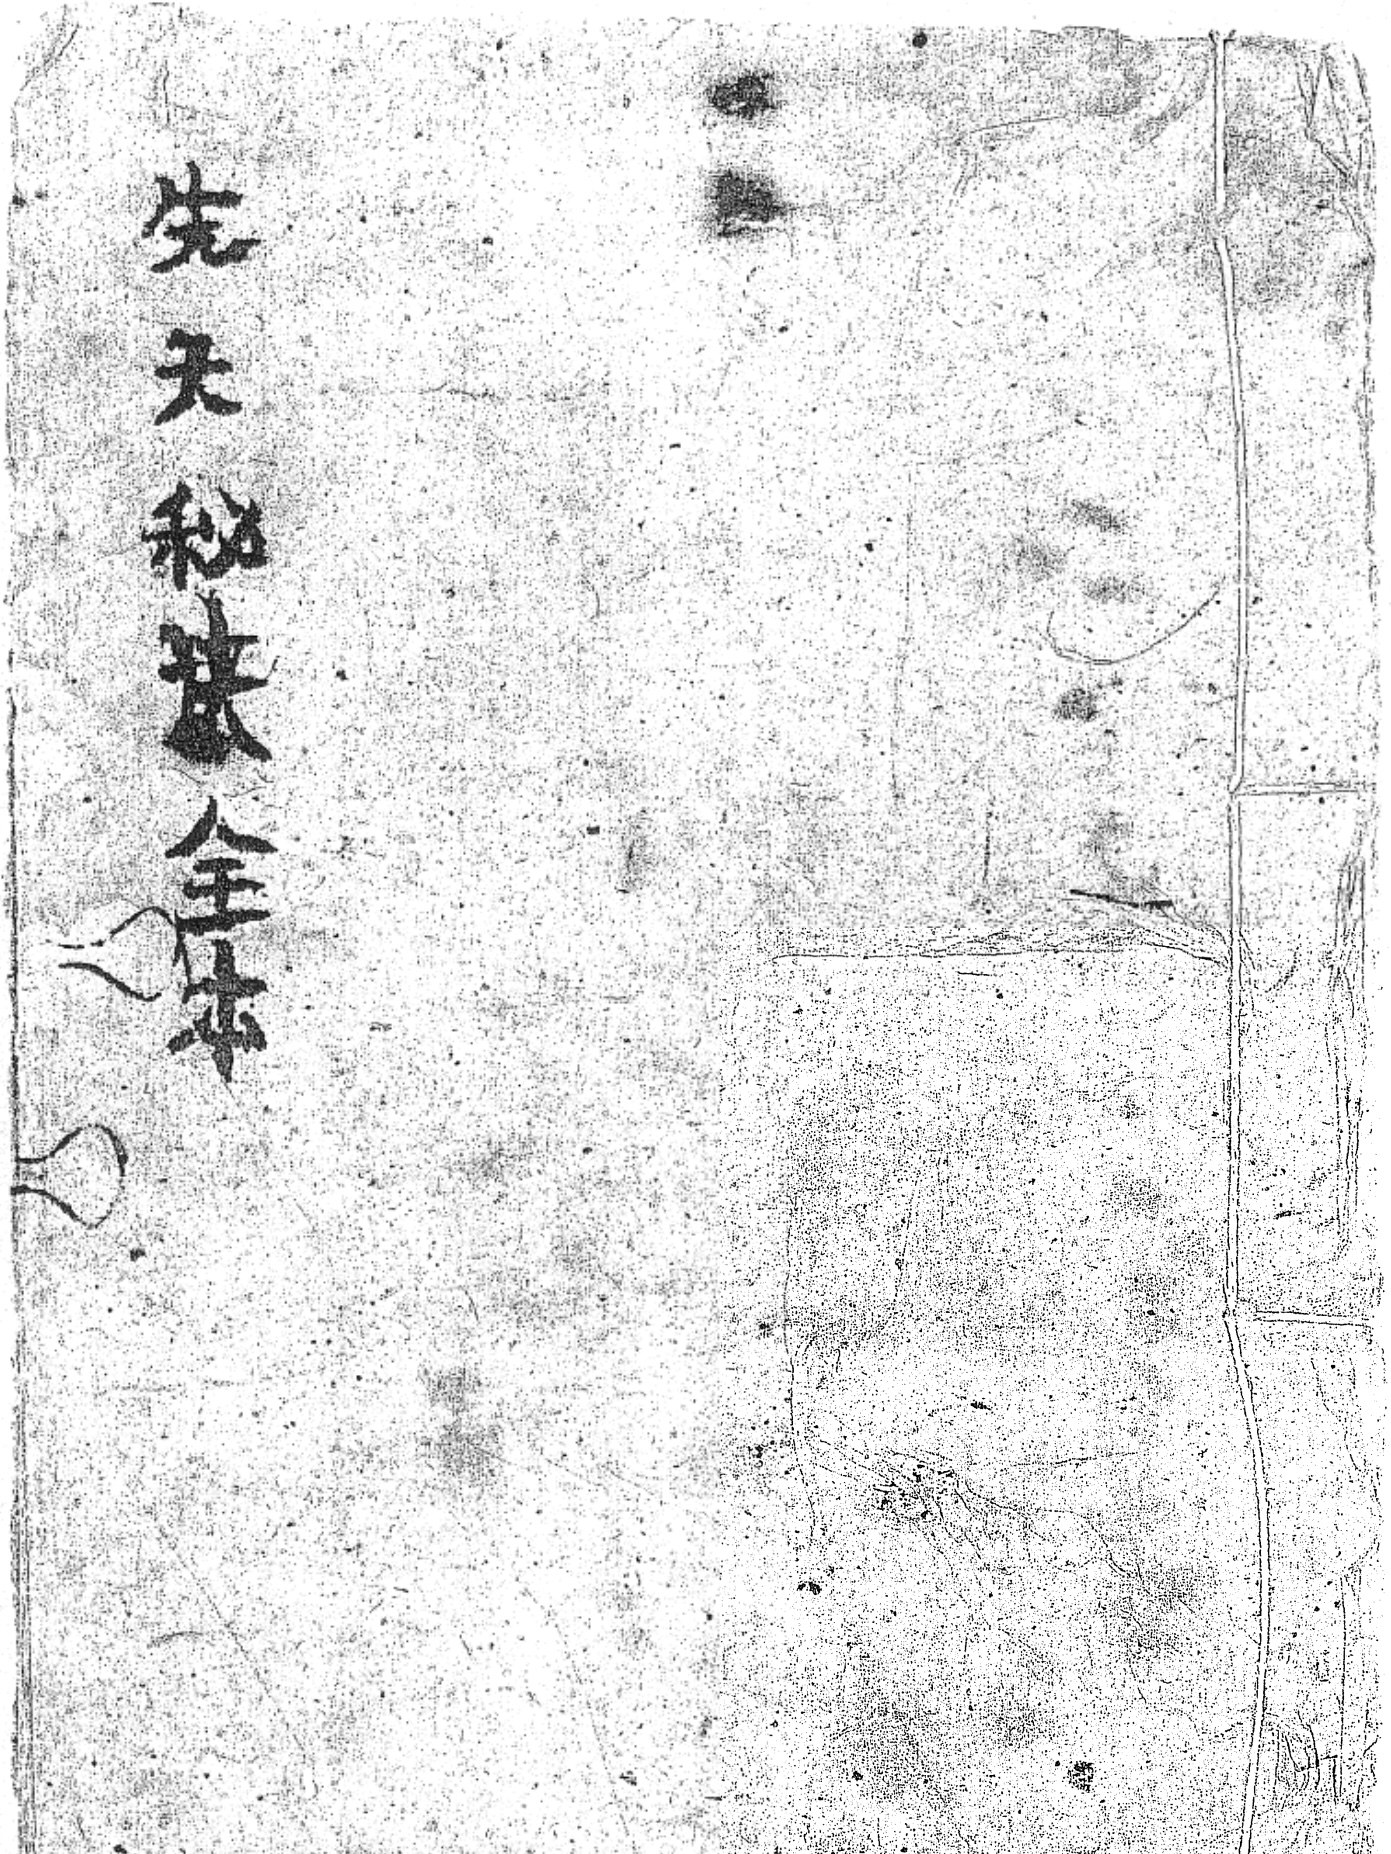 先天秘□全本